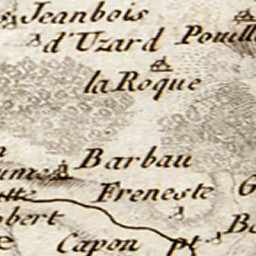 Jeanbois
d'Uzard
Pouill
la Roque
Barbau
ume
Freneste
tte
bert
Capon
pt